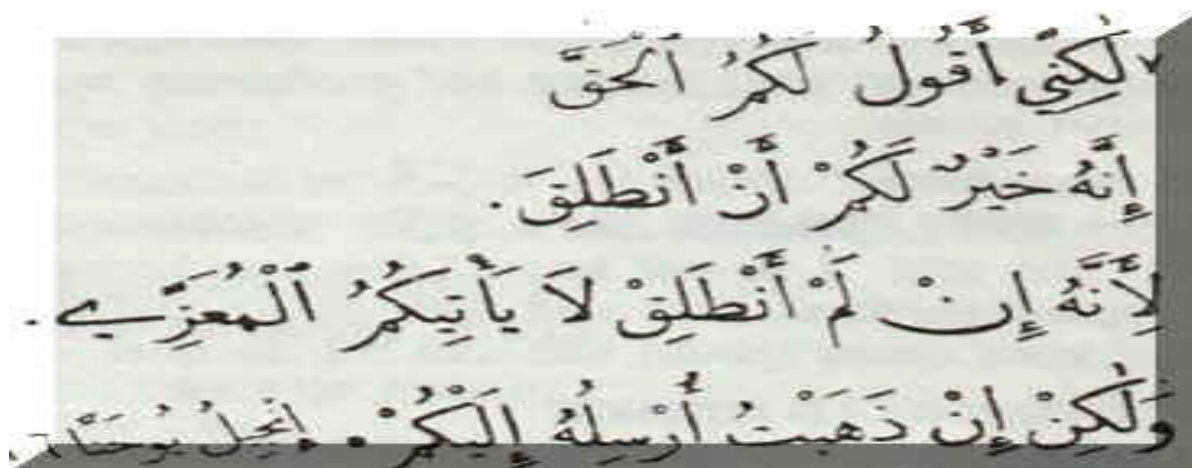 ٧لٰكِنِّي أَقُولُ لَكُمُ ٱلْحَقَّ
إِنَّهُ خَيْرٌ لَكُمْ أَنْ أَنْطَلِقَ.
لِأَنَّهُ إِنْ لَمْ أَنْطَلِقْ لَا يَأْتِيكُمُ ٱلْمُعَزِّي.
وَلٰكِنْ إِنْ ذَهَبْتُ أُرْسِلُهُ إِلَيْكُمْ. إِنْجِيلُ يُوحَنَّا